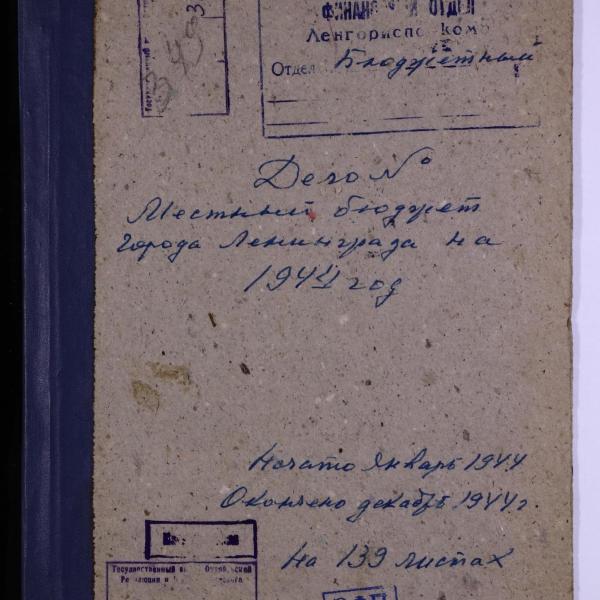 ФИНАНСОВЫЙ ОТДЕЛ
Ленгорисполкома
Отдел Бюджетный
3
343
Дело №
Местный бюджет
города Ленинграда на
1944 год
Начато январь 1944
Окончено декабрь 1944 г.
На 139 листах
Государственный
Революции и